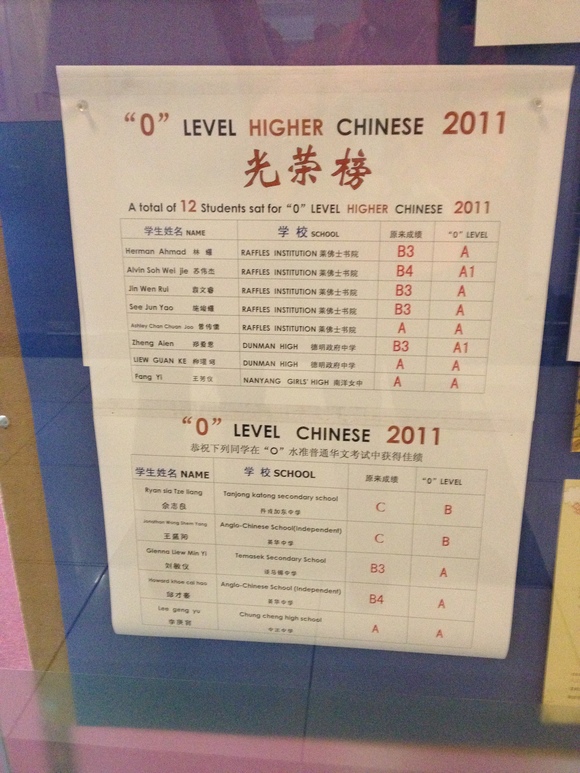 “0” LEVEL HIGHER CHINESE 2011
光荣榜
A total of 12 Students sat for “0” LEVEL HIGHER CHINESE 2011
学生姓名 NAME 学 校 SCHOOL 原来成绩 “0” LEVEL
Herman Ahmad 林 RAFFLES INSTITUTION 莱佛士书院 B3 A
Alvin Soh Wei jie 苏伟杰 RAFFLES INSTITUTION 莱佛士书院 B4 A1
Jin Wen Rui 文睿 RAFFLES INSTITUTION 莱佛士书院 B3 A
See Jun Yao 施 RAFFLES INSTITUTION 莱佛士书院 B3 A
Ashley Chan Chuan Jao 曾传儒 RAFFLES INSTITUTION 莱佛士书院 A A
Zheng Aien 郑爱恩 DUNMAN HIGH 德明政府中学 B3 A1
LIEW GUAN KE DUNMAN HIGH 德明政府中学 A A
Fang Yi 王芳仪 NANYANG GIRLS' HIGH 南洋女中 A A
“0” LEVEL CHINESE 2011
恭祝下列同学在“O”水准普通华文考试中获得佳绩
学生姓名 NAME 学 校 SCHOOL 原来成绩 “0” LEVEL
Ryan sia Tze liang Tanjong katong secondary school C B
佘志良 丹戎加东中学
Jonathan Wong Shern Yang Anglo-Chinese School(Independent) C B
王 英华中学
Glenna Liew Min Yi Temasek Secondary School B3 A
刘敏仪 淡马锡中学
Howard khaw cai hao Anglo-Chinese School(Independent) B4 A
才豪 英华中学
Lee geng yu Chung cheng high school A A
李 中正中学